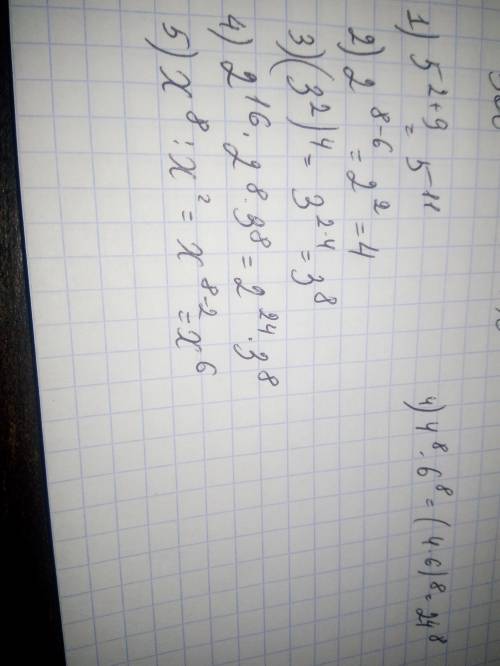 1) 5^{2+9} = 5^{11}
2) 2^{8-6} = 2^2 = 4
3) (3^2)^4 = 3^{2·4} = 3^8
4) 2^{16} · 2^8 · 3^8 = 2^{24} · 3^8
5) x^8 : x^2 = x^{8-2} = x^6
4) 4^8 · 6^8 = (4·6)^8 = 24^8